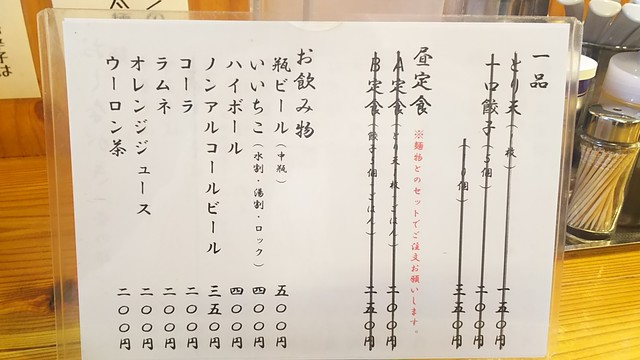 一品
とり天（一枚） 一五〇円
一口餃子（五個） 二〇〇円
（一〇個） 三五〇円
昼定食 ※麺物とのセットでご注文お願いします。
A定食（とり天一枚、ごはん） 二〇〇円
B定食（餃子五個、ごはん） 二五〇円
お飲み物
瓶ビール（中瓶） 五〇〇円
いいちこ（水割・湯割・ロック） 四〇〇円
ハイボール 四〇〇円
ノンアルコールビール 三五〇円
コーラ 二〇〇円
ラムネ 二〇〇円
オレンジジュース 二〇〇円
ウーロン茶 二〇〇円